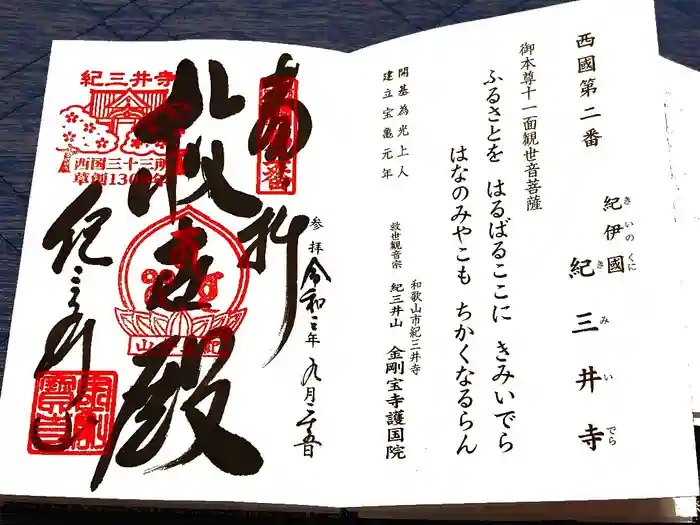 西國第二番
紀伊國
きいのくに
紀三井寺
きみいでら
御本尊十一面観世音菩薩
ふるさとを はるばるここに きみいでら
はなのみやこも ちかくなるらん
開基為光上人
建立宝亀元年
和歌山市紀三井寺
救世観音宗 紀三井山 金剛宝寺護国院
奉拝
参拝令和三年九月二五日
救世殿
紀三井寺
紀三井寺
西国三十三所
草創1300年